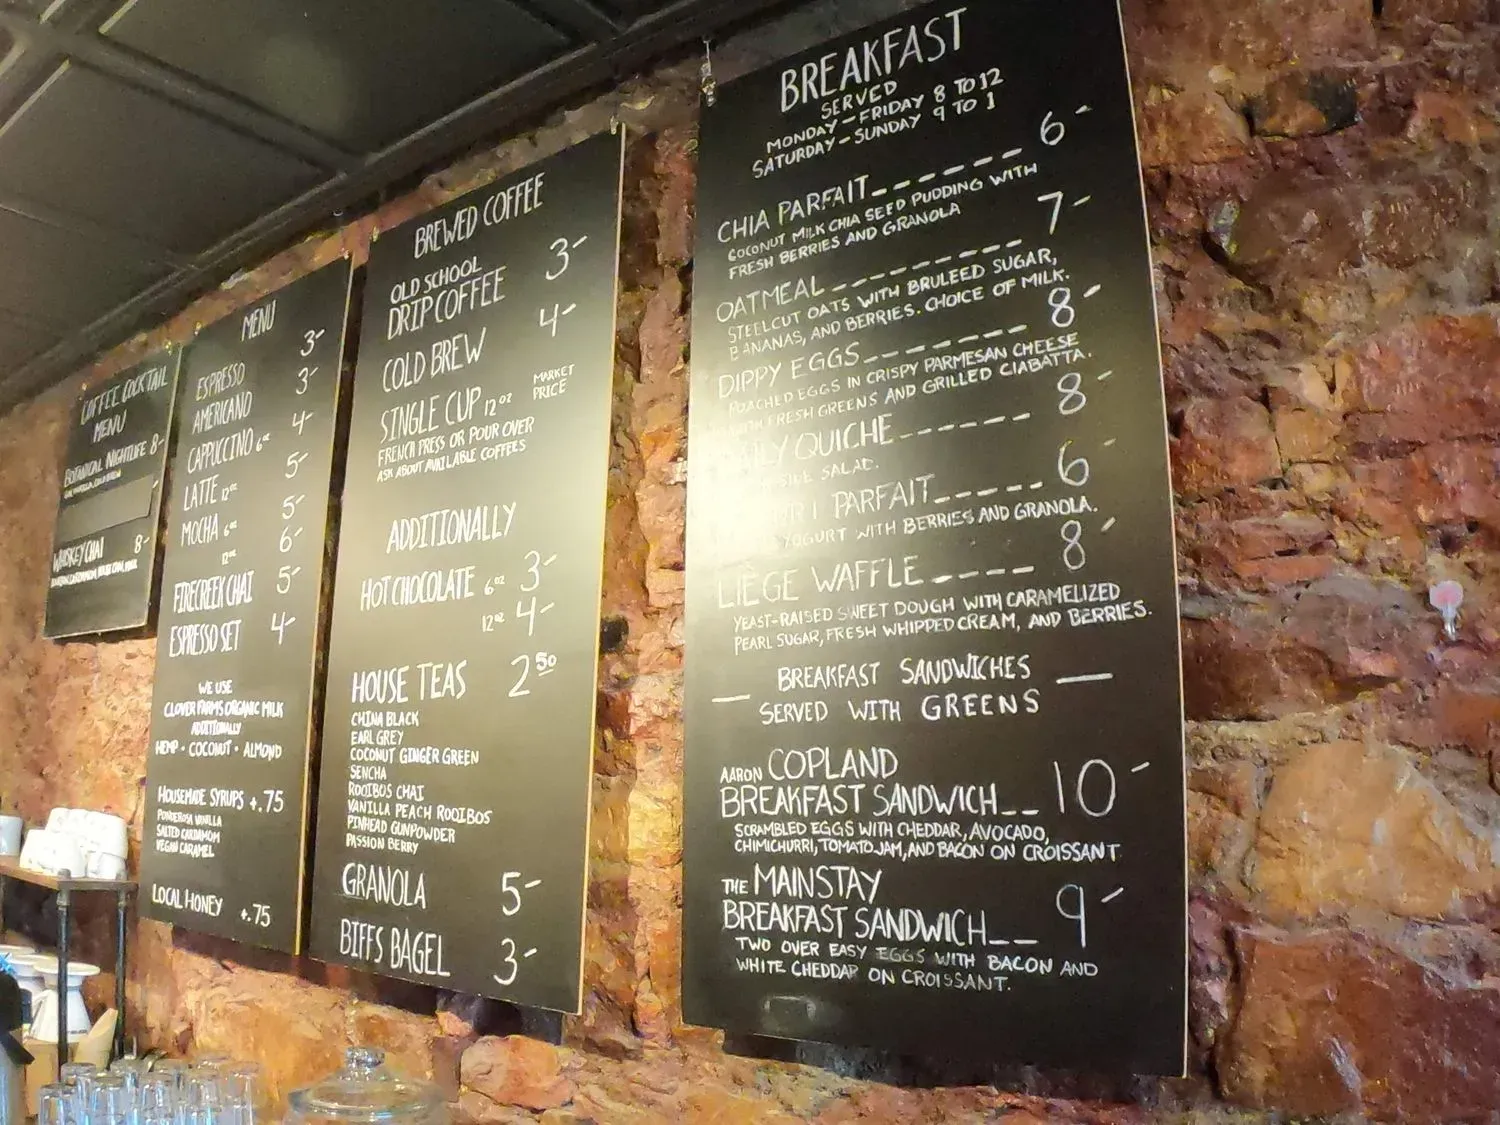 COFFEE COCKTAIL
MENU
BOTANICAL NIGHTLIFE 8-
WHISKEY CHAI 8-
MENU
ESPRESSO 3-
AMERICANO 3-
CAPPUCCINO 6oz 4-
LATTE 12oz 5-
MOCHA 6oz 5-
12oz 6-
FIRECREEK CHAI 5-
ESPRESSO SET 4-
WE USE
CLOVER FARMS ORGANIC MILK
ADDITIONALLY
HEMP • COCONUT • ALMOND
HOUSEMADE SYRUPS +.75
PONDEROSA VANILLA
SALTED CARDAMOM
VEGAN CARAMEL
LOCAL HONEY +.75
BREWED COFFEE
OLD SCHOOL
DRIP COFFEE 3-
COLD BREW 4-
SINGLE CUP 12oz MARKET PRICE
FRENCH PRESS OR POUR OVER
ASK ABOUT AVAILABLE COFFEES
ADDITIONALLY
HOT CHOCOLATE 6oz 3-
12oz 4-
HOUSE TEAS 2 50
CHINA BLACK
EARL GREY
COCONUT GINGER GREEN
SENCHA
ROOIBUS CHAI
VANILLA PEACH ROOIBOS
PINHEAD GUNPOWDER
PASSION BERRY
GRANOLA 5-
BIFFS BAGEL 3-
BREAKFAST
SERVED
MONDAY - FRIDAY 8 TO 12
SATURDAY - SUNDAY 9 TO 1
CHIA PARFAIT------- 6-
COCONUT MILK CHIA SEED PUDDING WITH
FRESH BERRIES AND GRANOLA
OATMEAL--------- 7-
STEELCUT OATS WITH BRULEED SUGAR,
BANANAS, AND BERRIES. CHOICE OF MILK.
DIPPY EGGS-------- 8-
POACHED EGGS IN CRISPY PARMESAN CHEESE
WITH FRESH GREENS AND GRILLED CIABATTA.
DAILY QUICHE------ 8-
SIDE SALAD.
PARFAIT----- 6-
YOGURT WITH BERRIES AND GRANOLA.
LIÈGE WAFFLE---- 8-
YEAST-RAISED SWEET DOUGH WITH CARAMELIZED
PEARL SUGAR, FRESH WHIPPED CREAM, AND BERRIES.
BREAKFAST SANDWICHES
— SERVED WITH GREENS —
AARON COPLAND
BREAKFAST SANDWICH-- 10-
SCRAMBLED EGGS WITH CHEDDAR, AVOCADO,
CHIMICHURRI, TOMATO JAM, AND BACON ON CROISSANT
THE MAINSTAY
BREAKFAST SANDWICH-- 9-
TWO OVER EASY EGGS WITH BACON AND
WHITE CHEDDAR ON CROISSANT.